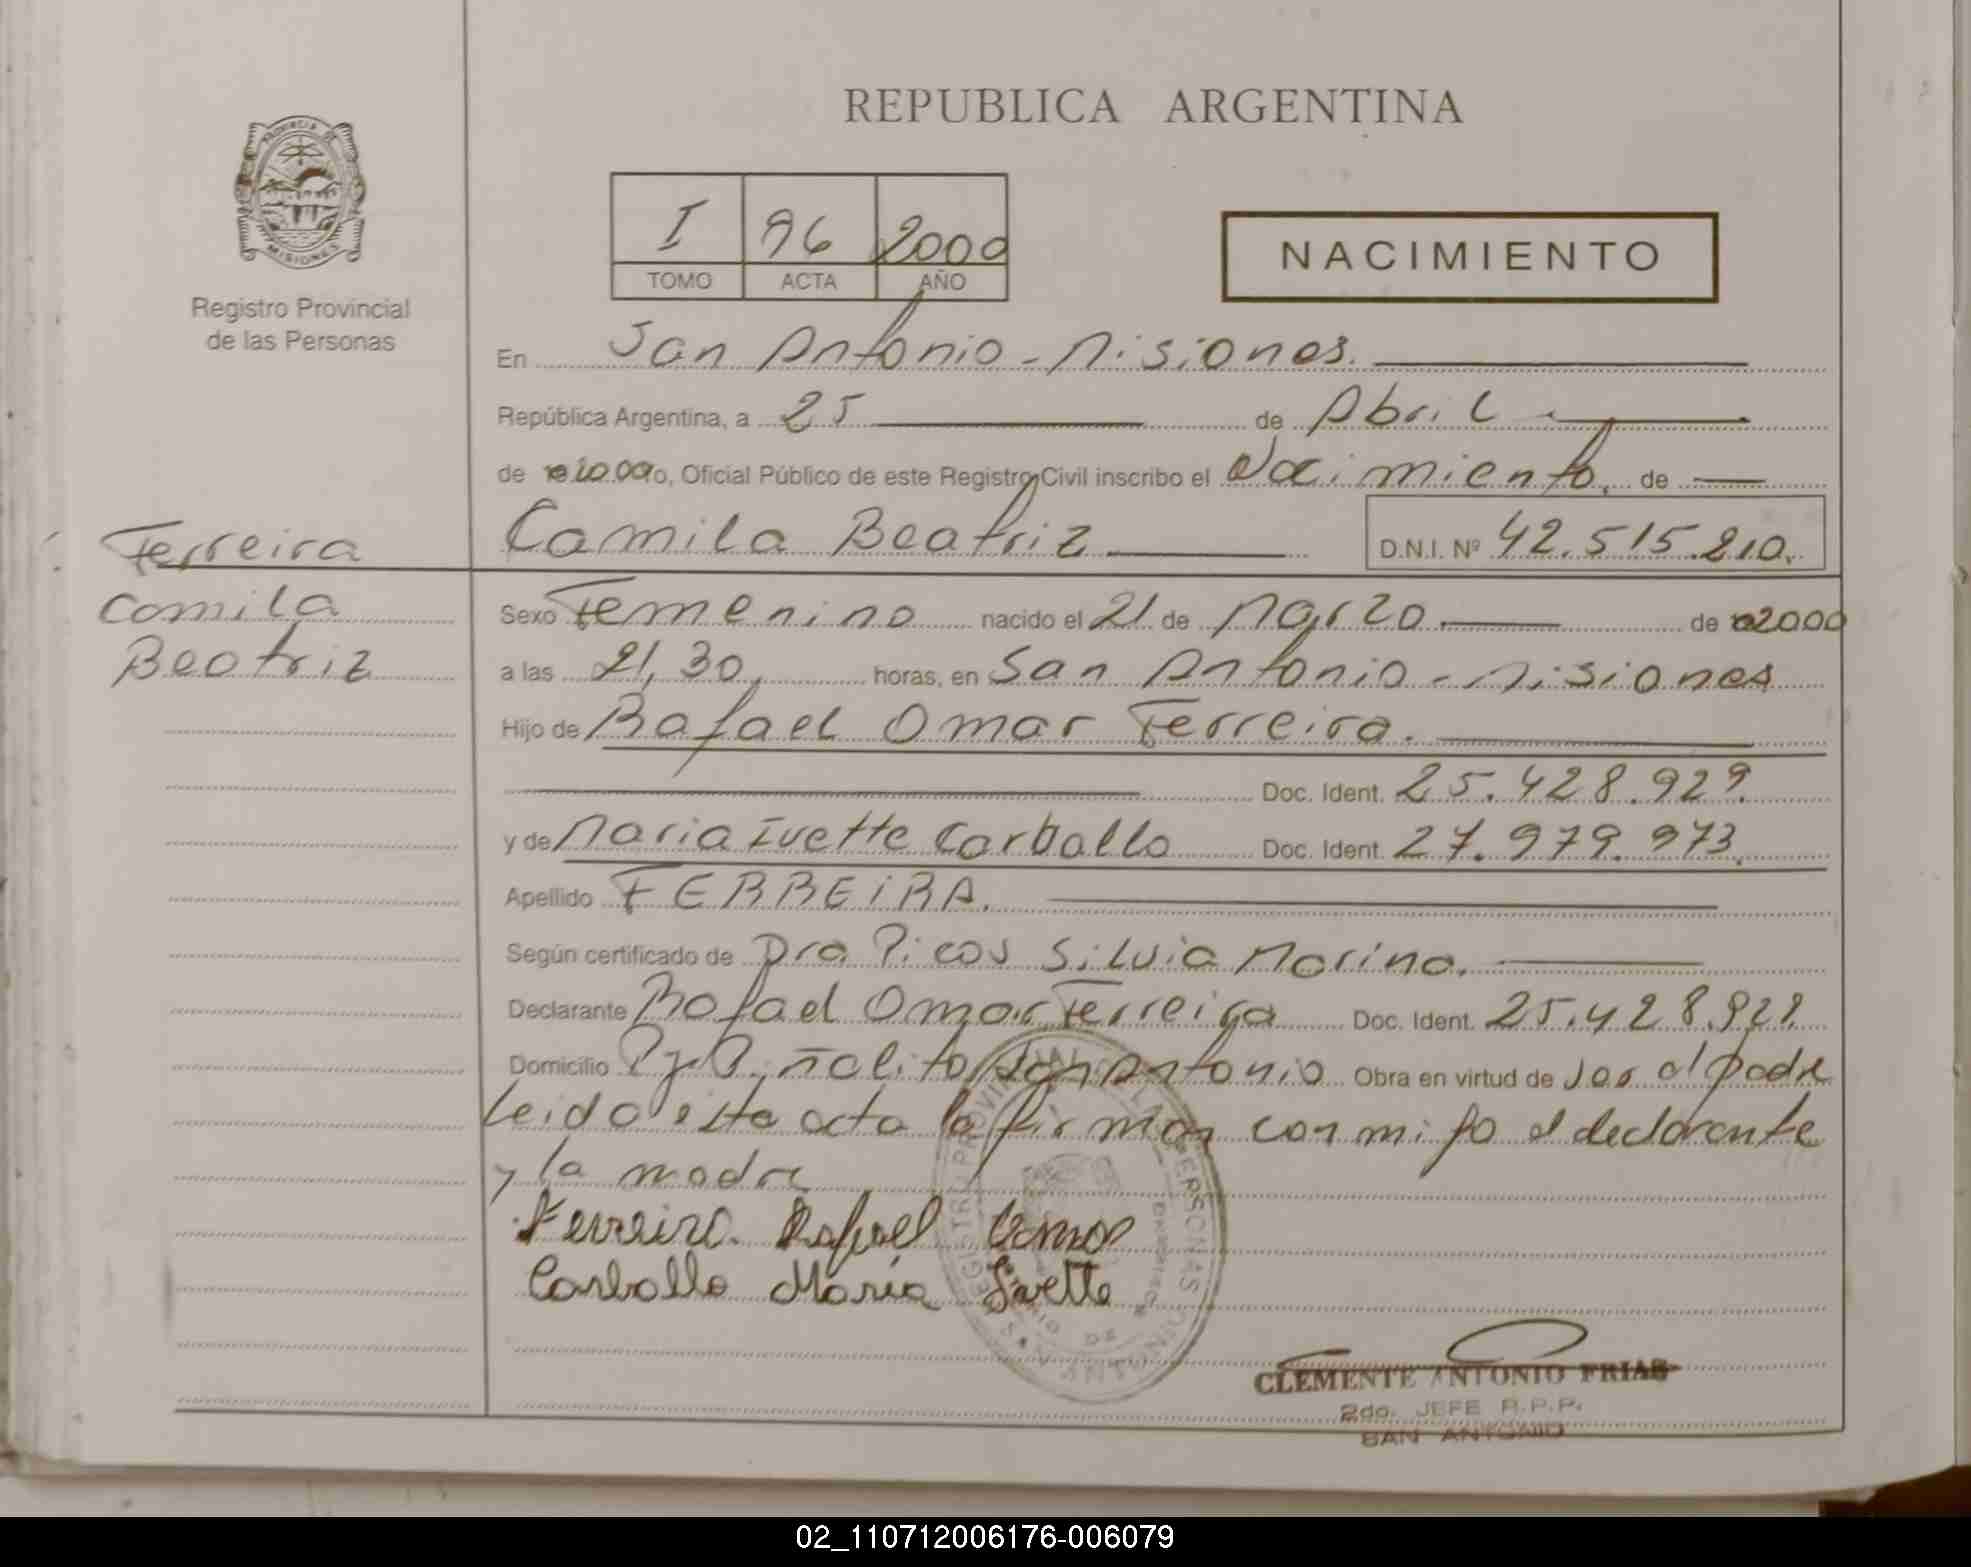 REPUBLICA ARGENTINA
PROVINCIA DE
MISIONES
Registro Provincial
de las Personas
I 96 2000
TOMO ACTA AÑO
NACIMIENTO
En San Antonio - Misiones.
República Argentina, a 25 de Abril
de 2000, Oficial Público de este Registro Civil inscribo el Nacimiento, de
Camila Beatriz D.N.I. Nº 42.515.210.
Ferreira
Camila
Beatriz
Sexo Femenino nacido el 21 de Marzo de 2000
a las 21,30, horas, en San Antonio - Misiones
Hijo de Rafael Omar Ferreira.
Doc. Ident. 25.428.929.
y de Maria Ivette Carballo Doc. Ident. 27.979.973.
Apellido FERREIRA.
Según certificado de Dra Picos Silvia Marina.
Declarante Rafael Omar Ferreira Doc. Ident. 25.428.929.
Domicilio Piñalito San Antonio Obra en virtud de ser el padre
Leida esta acta la firman con migo el declarante
y la madre
Ferreira Rafael Omar
Carballo María Ivette
CLEMENTE ANTONIO FRIAS
2do. JEFE R.P.P.
SAN ANTONIO
02_110712006176-006079